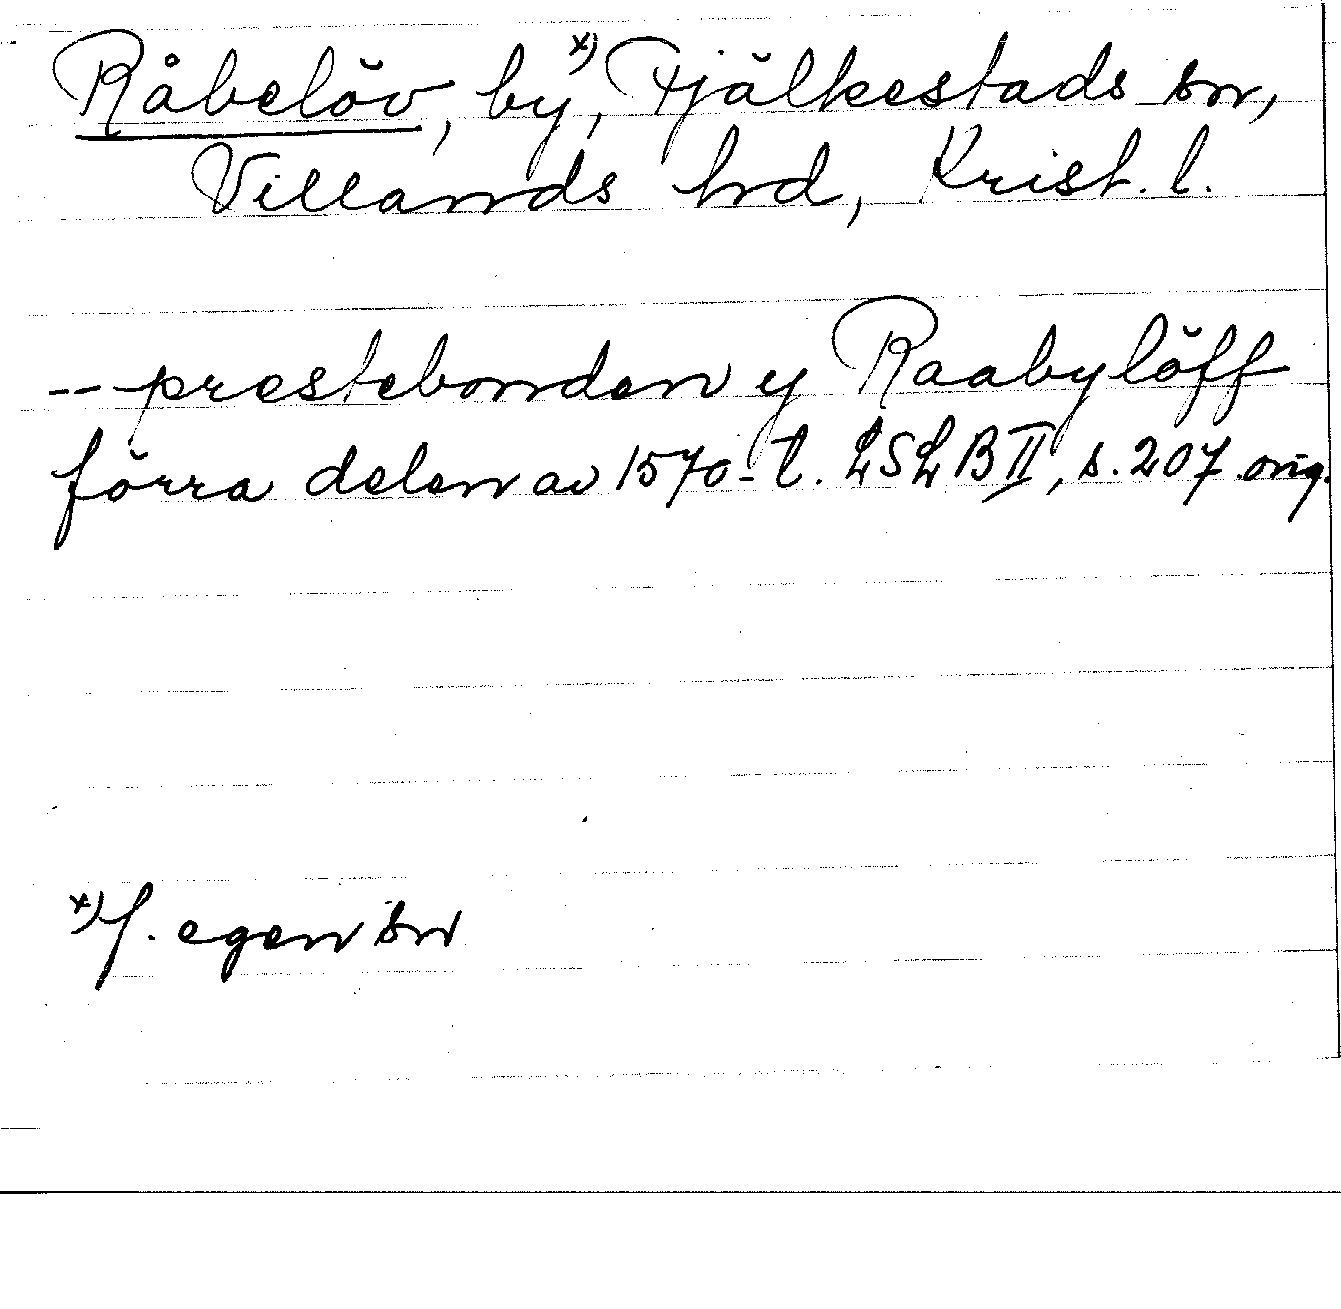 Råbelöv, by,ˣ⁾ Fjälkestads sn,
Villands hd, Krist. l.
-- prestebonden y Raabylöff
förra delen av 1570-t. LSLB II, s. 207 orig.
ˣ⁾ f. egen sn